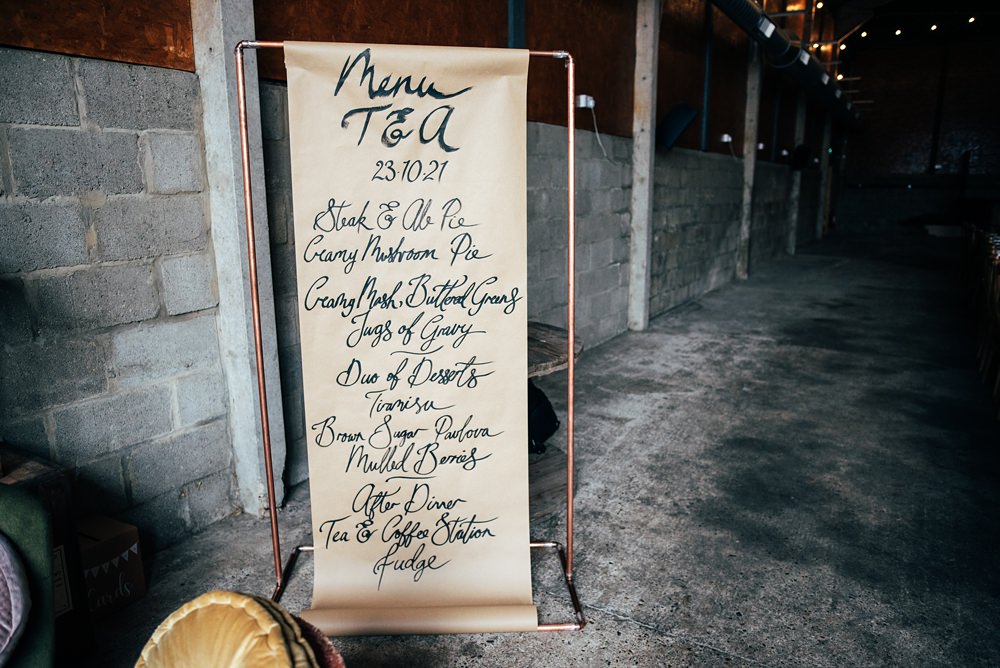 Menu
T & A
23.10.21
Steak & Ale Pie
Creamy Mushroom Pie
Creamy Mash, Buttered Greens
Jugs of Gravy
Duo of Desserts
Tiramisu
Brown Sugar Pavlova
Mulled Berries
After Dinner
Tea & Coffee Station
Fudge
Cards